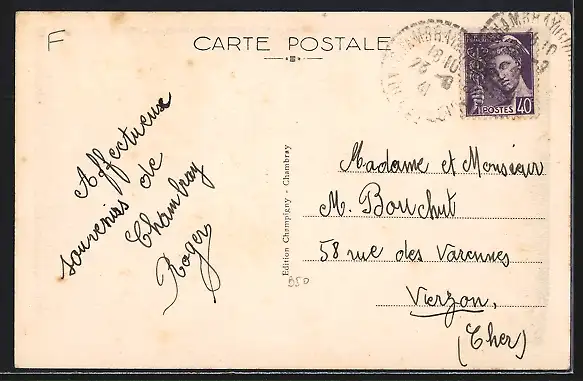 F
CARTE POSTALE
POSTES 40
Affectueux
souvenirs de
Chambray
Roger
Edition Champigny - Chambray
550
Madame et Monsieur
M. Bouchut
58 rue des Varennes
Vierzon,
(Cher)